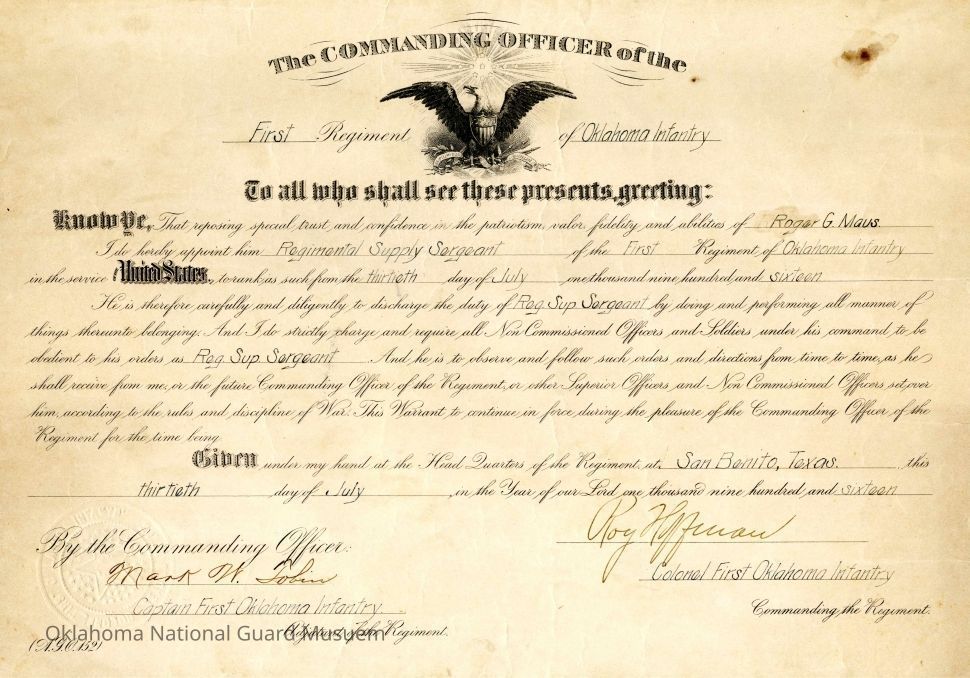 The COMMANDING OFFICER of the
First Regiment of Oklahoma Infantry
To all who shall see these presents, greeting:
Know Ye, That reposing special trust and confidence in the patriotism, valor, fidelity and abilities of Roger G. Maus.
I do hereby appoint him Regimental Supply Sergeant of the First Regiment of Oklahoma Infantry
in the service United States, to rank as such from the thirtieth day of July one thousand nine hundred and sixteen
He is therefore carefully and diligently to discharge the duty of Reg Sup Sergeant by doing and performing all manner of
things thereunto belonging. And I do strictly charge and require all Non Commissioned Officers and Soldiers under his command to be
obedient to his orders as Reg Sup Sergeant And he is to observe and follow such orders and directions from time to time, as he
shall receive from me, or the future Commanding Officer of the Regiment, or other Superior Officers and Non Commissioned Officers set over
him, according to the rules and discipline of War. This Warrant to continue in force during the pleasure of the Commanding Officer of the
Regiment for the time being
Given under my hand at the Head Quarters of the Regiment at San Benito, Texas. this
thirtieth day of July in the Year of our Lord one thousand nine hundred and sixteen
Roy Hoffman
By the Commanding Officer:
Mark W. Tobin
Colonel First Oklahoma Infantry
Captain First Oklahoma Infantry
Commanding the Regiment.
Regiment.
Oklahoma National Guard Museum
(A.G.O. 152)